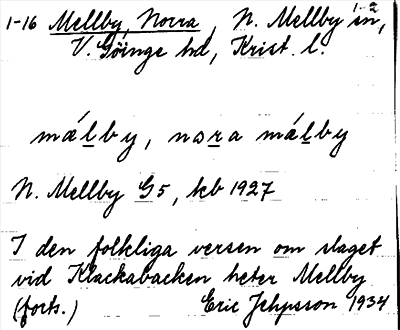 1-16 Mellby, Norra, N. Mellby sn, 1-2
V. Göinge hd, Krist. l.
mǽlby, nɔra málby
N. Mellby G5, kb 1927
I den folkliga versen om slaget
vid Klackabacken heter Mellby
(forts.) Eric Jehpsson 1934